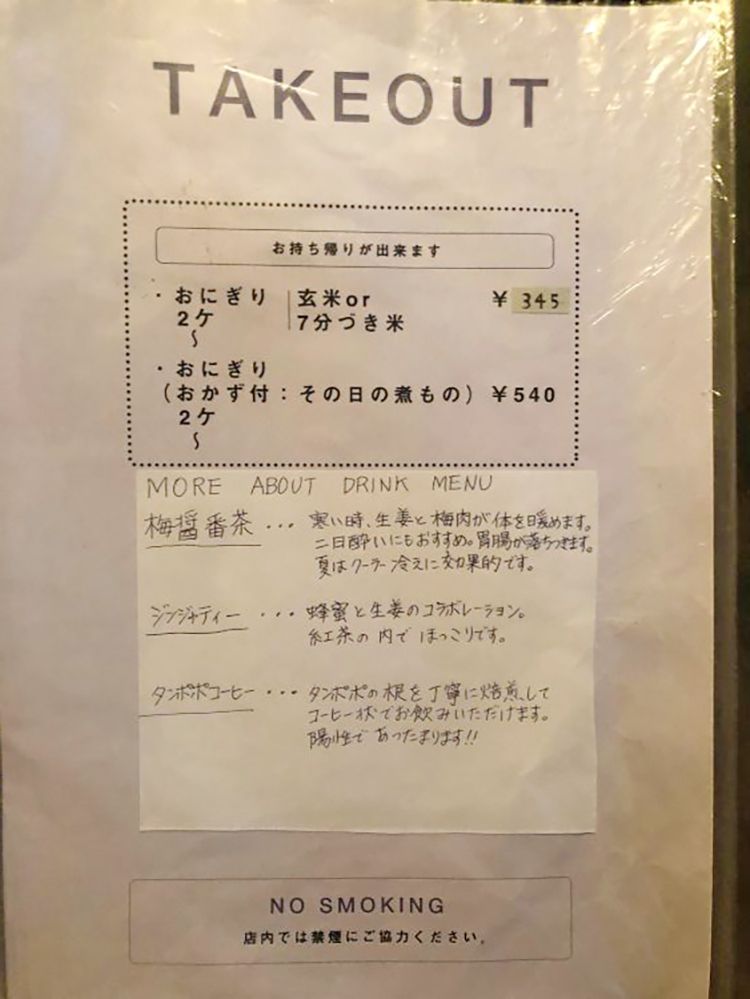 TAKEOUT
お持ち帰りが出来ます
・おにぎり 玄米or ¥345
2ケ 7分づき米
〜
・おにぎり
（おかず付：その日の煮もの）¥540
2ケ
〜
MORE ABOUT DRINK MENU
梅醤番茶 ・・・ 寒い時、生姜と梅肉が体を暖めます。
二日酔いにもおすすめ。胃腸が落ちつきます。
夏はクーラー冷えに効果的です。
ジンジャティー ・・・ 蜂蜜と生姜のコラボレーション。
紅茶の内でほっこりです。
タンポポコーヒー ・・・ タンポポの根を丁寧に焙煎して
コーヒー状でお飲みいただけます。
陽性であったまります!!
NO SMOKING
店内では禁煙にご協力ください。